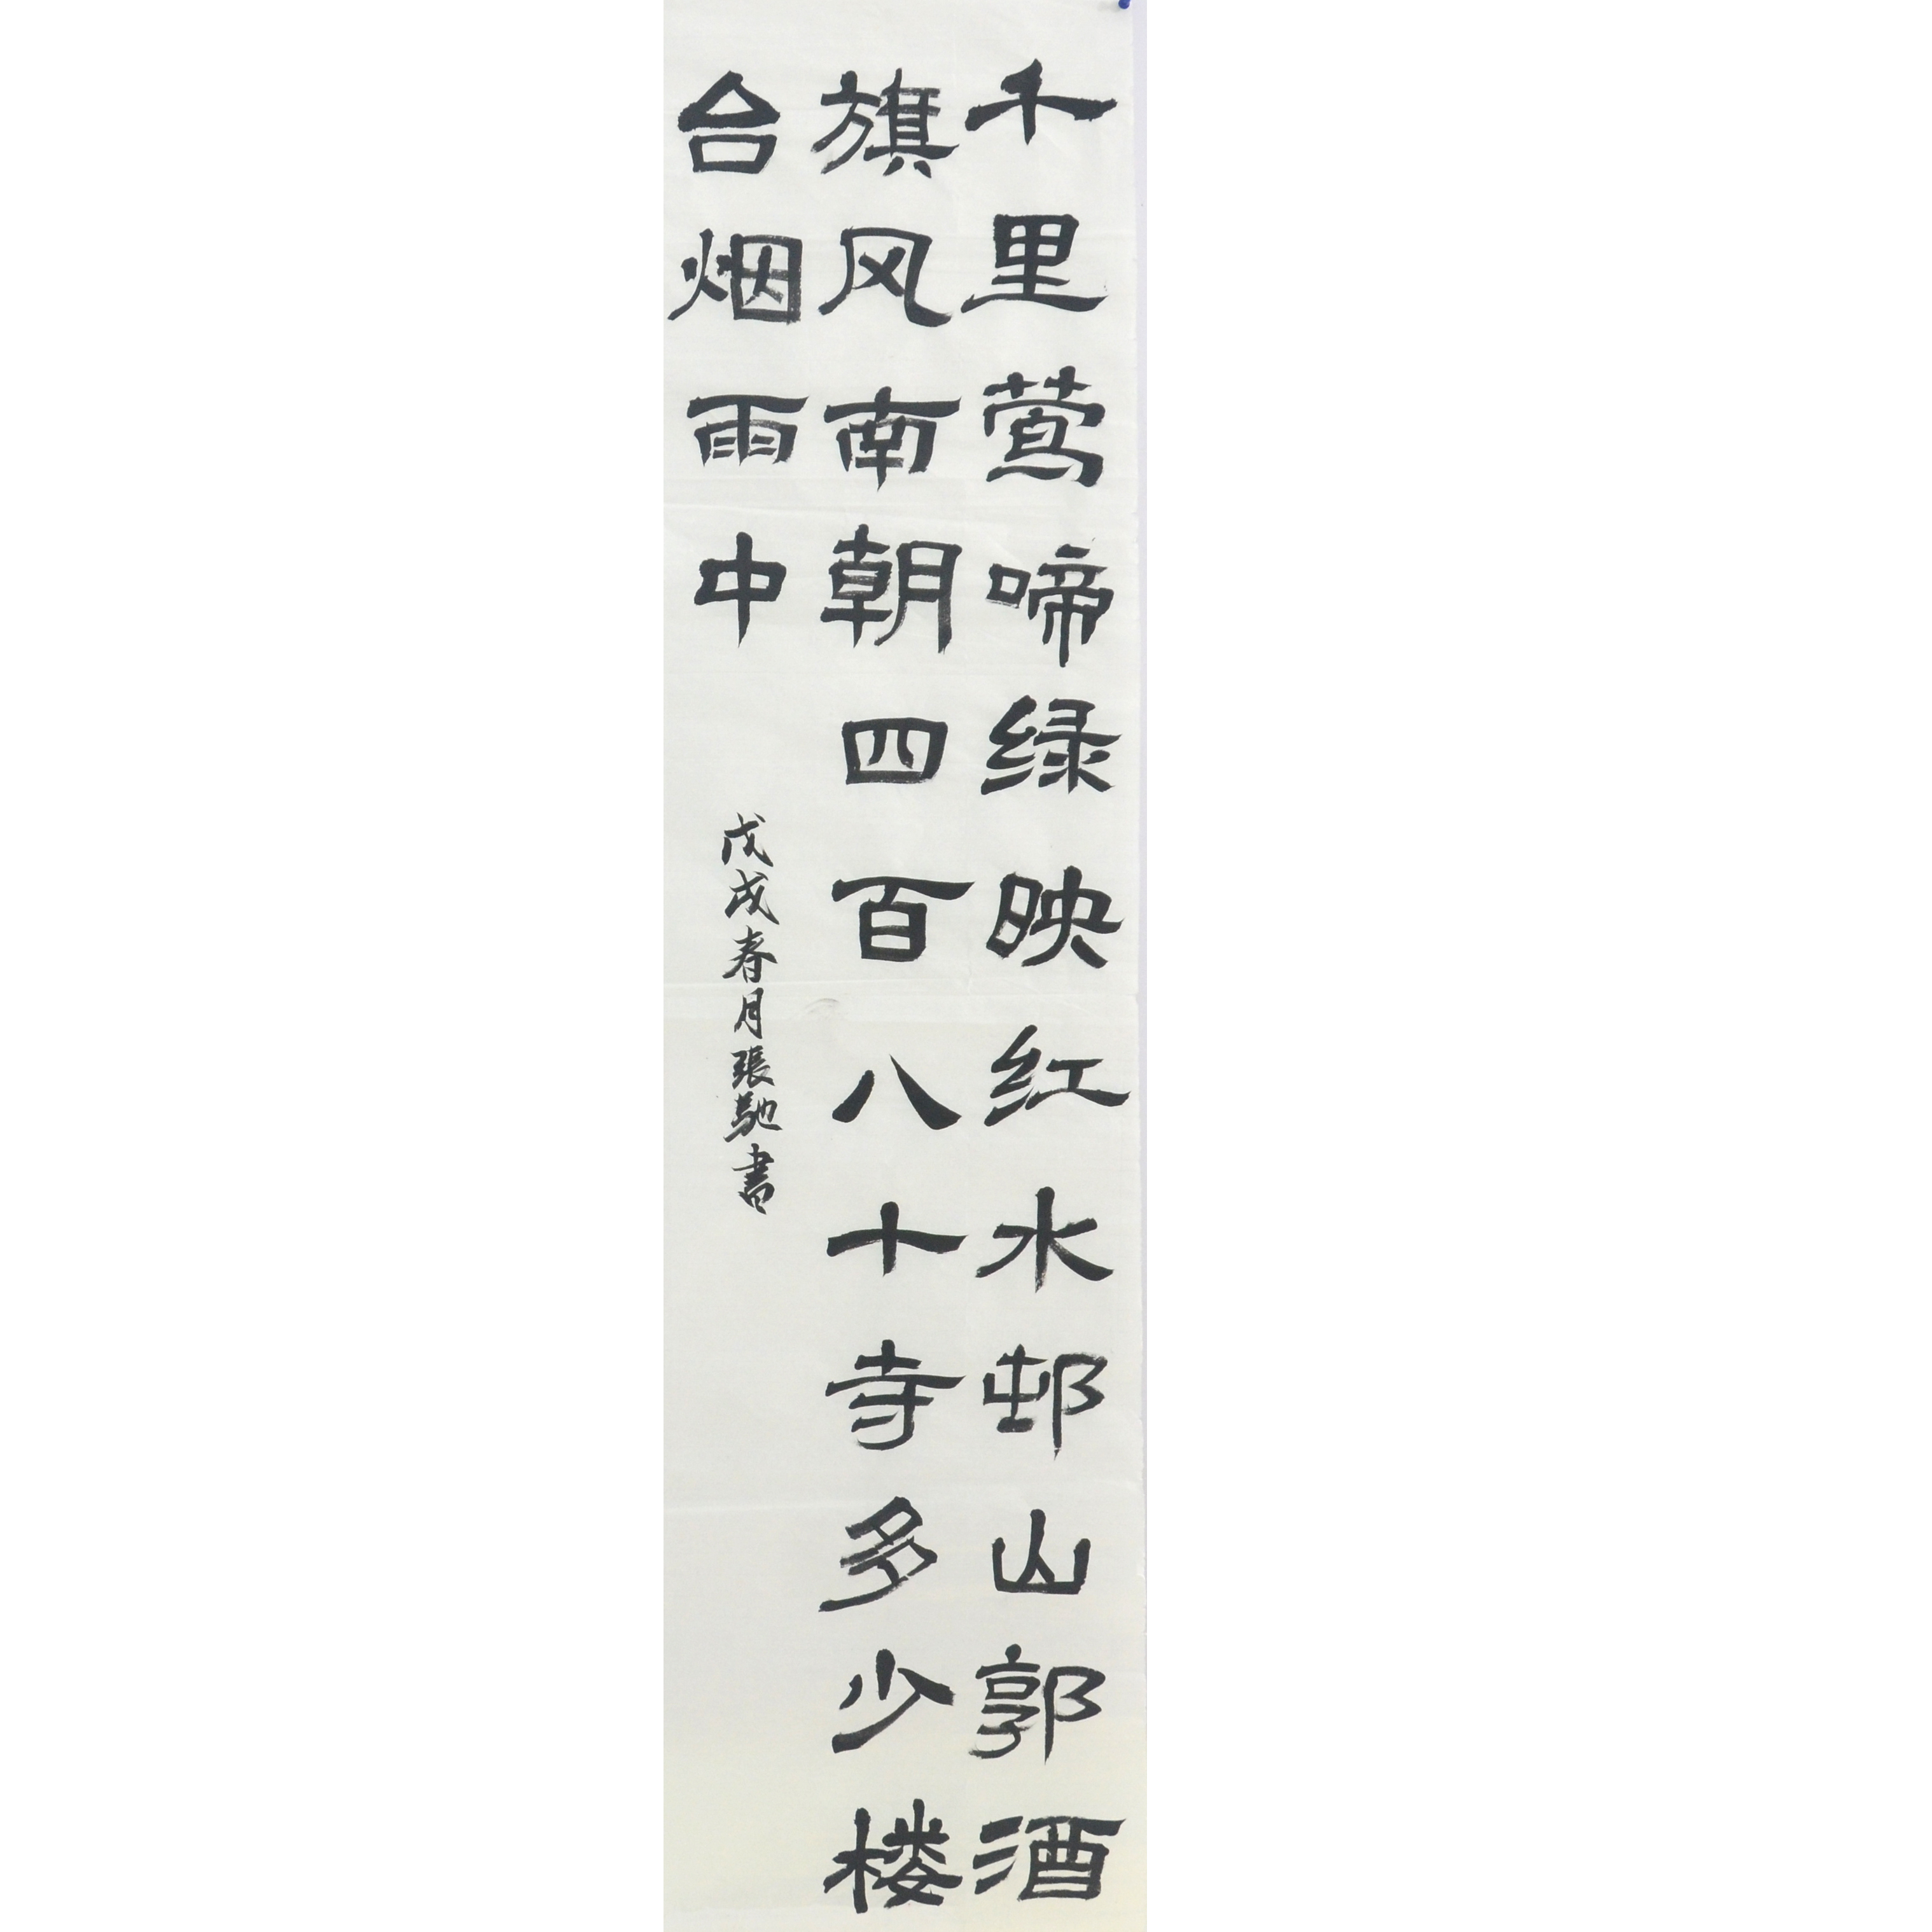 千里莺啼绿映红水邨山郭酒
旗风南朝四百八十寺多少楼
台烟雨中
戊戌春月張馳書